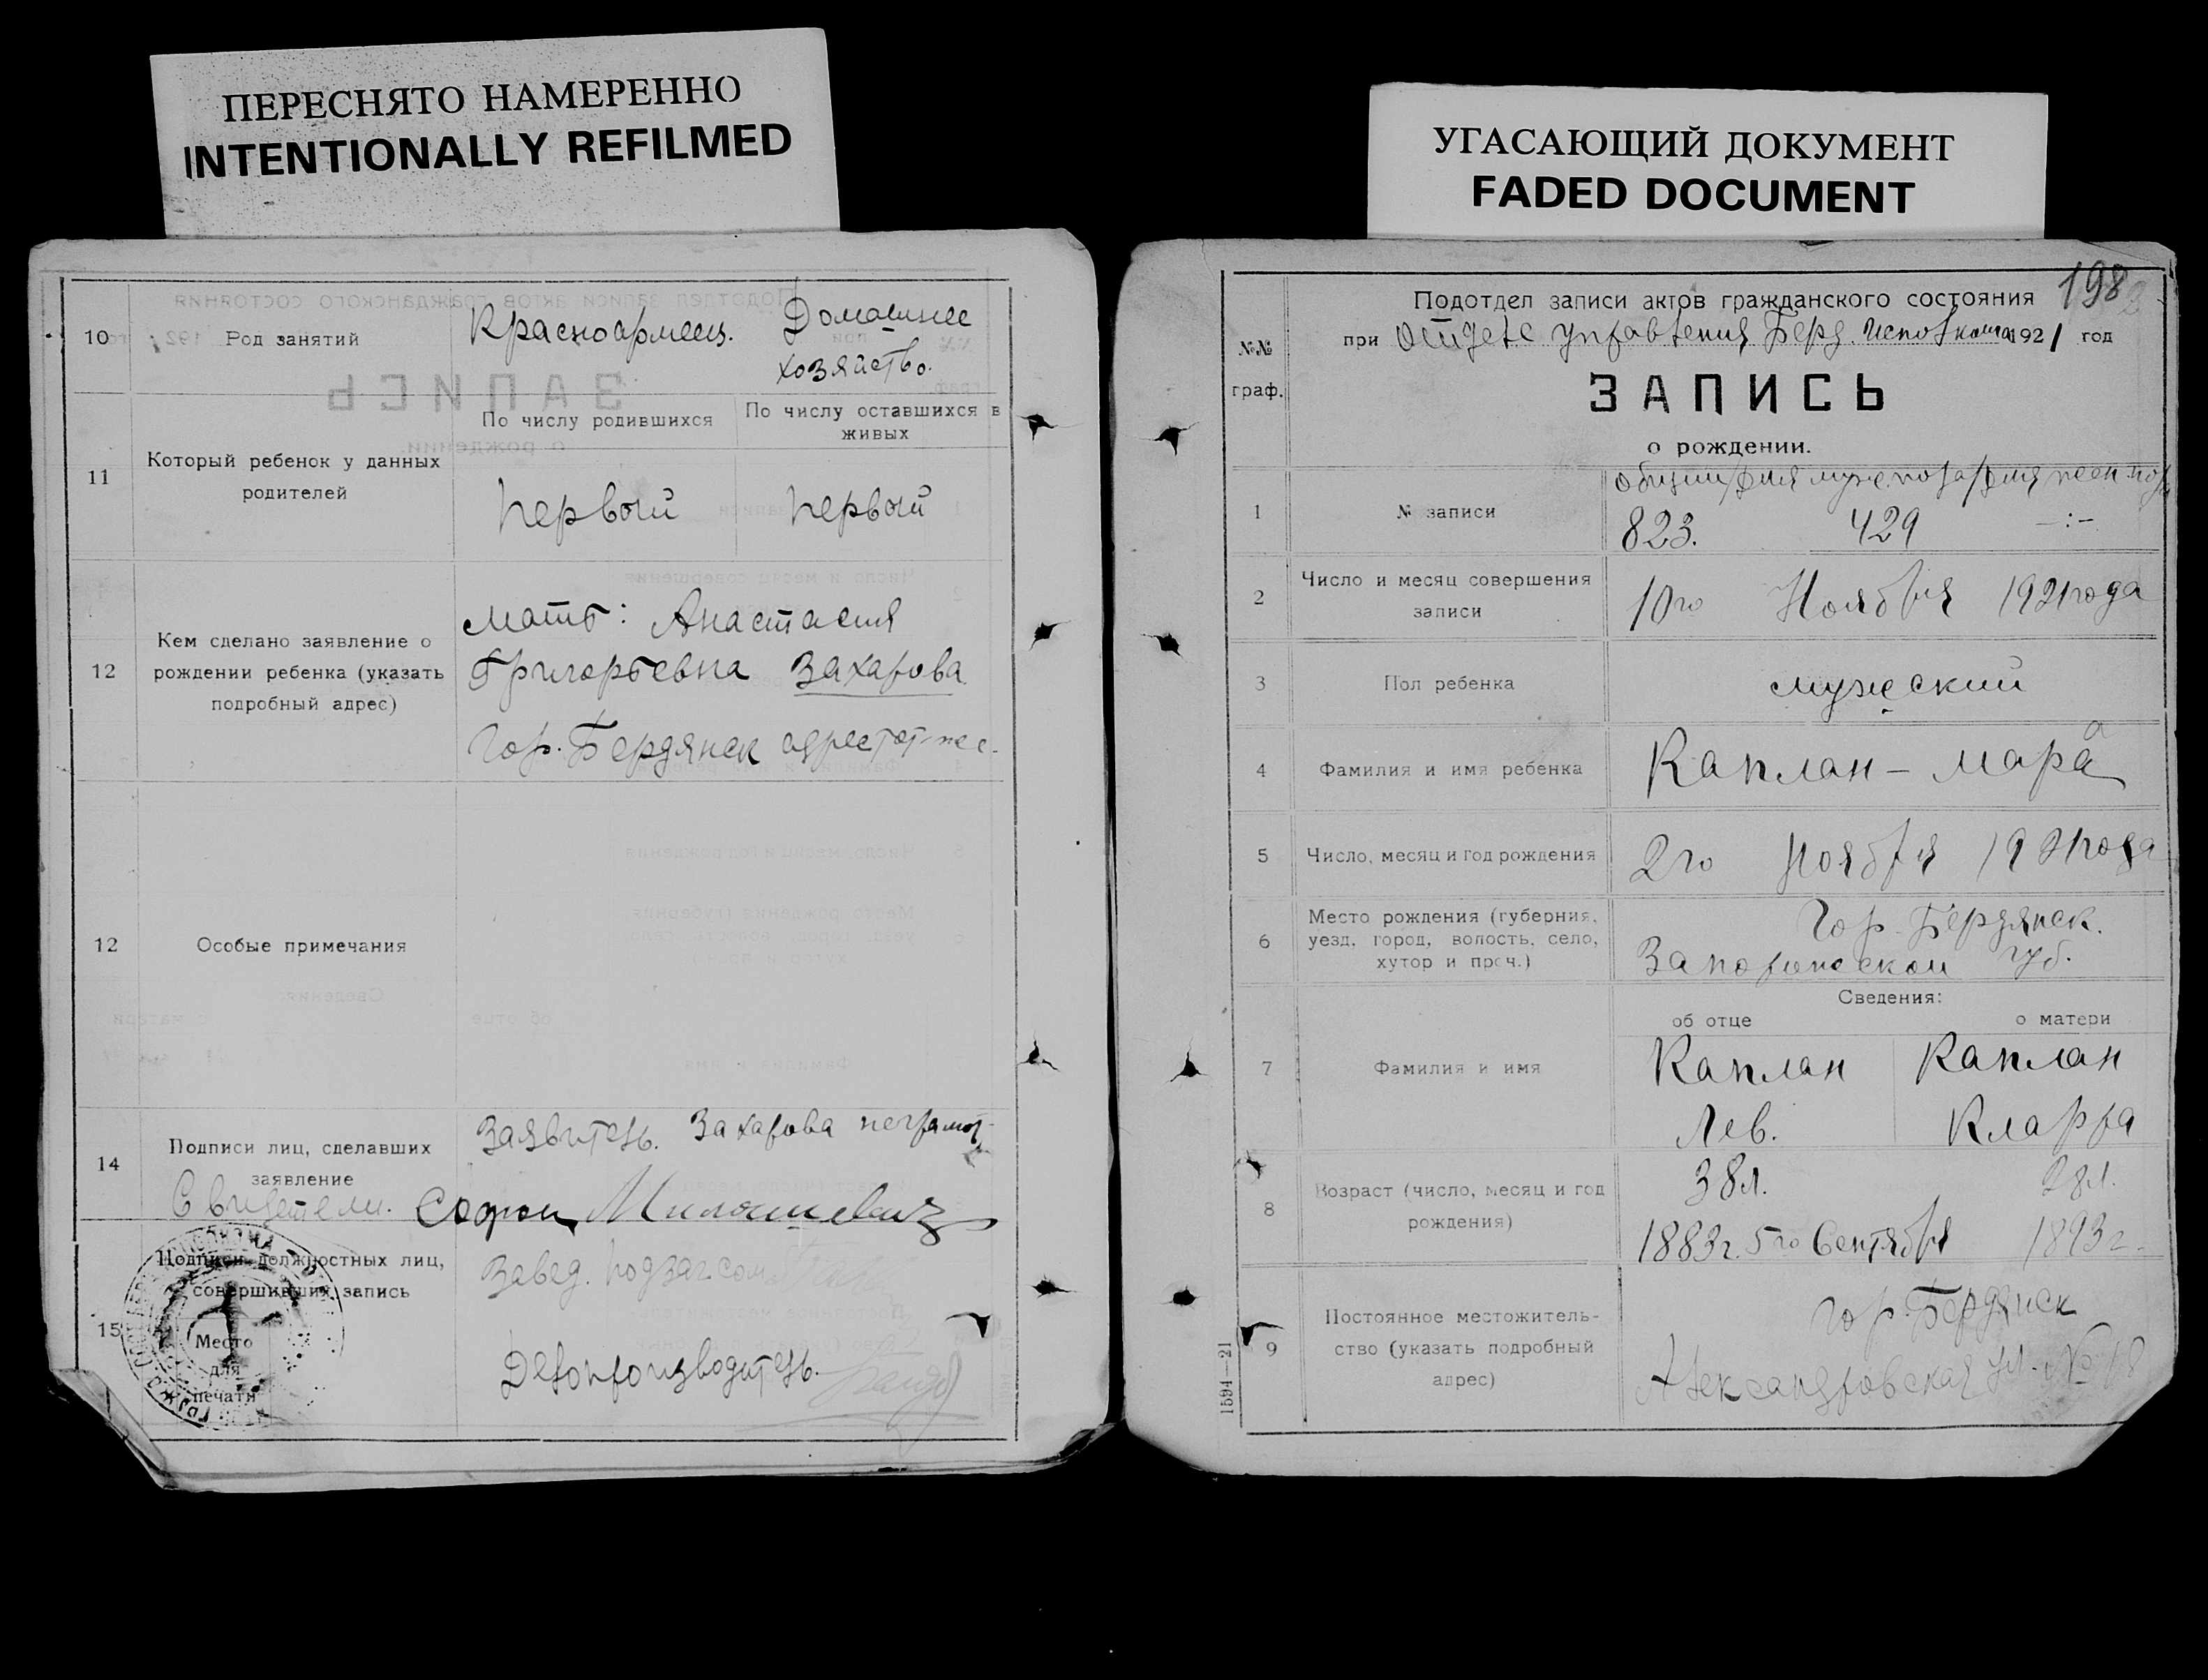 ПЕРЕСНЯТО НАМЕРЕННО
INTENTIONALLY REFILMED
10
Род занятий
Красноармеец.
Домашнее
хозяйство.
11
Который ребенок у данных
родителей
По числу родившихся
По числу оставшихся в
живых
первый
первый
12
Кем сделано заявление о
рождении ребенка (указать
подробный адрес)
мать: Анастасия
Григорьевна Захарова
Гор. Бердянск адрес тот-же-
12
Особые примечания
14
Подписи лиц, сделавших
заявление
Заявитель. Захарова неграмот
Свидетели.
15
Подписи должностных лиц,
совершивших запись
Место
для
печати
Завед. подзагсом
Делопроизводитель.
УГАСАЮЩИЙ ДОКУМЕНТ
FADED DOCUMENT
198
№№
граф.
Подотдел записи актов гражданского состояния
при Отделе Управления Берд. Исполкома 1921 год
ЗАПИСЬ
о рождении.
1
№ записи
общий/для муж. пола/для жен. пол
823. 429 -:-
2
Число и месяц совершения
записи
10го Ноября 1921 года
3
Пол ребенка
мужеский
4
Фамилия и имя ребенка
Каплан - Мара
5
Число, месяц и год рождения
2го Ноября 1921 года
6
Место рождения (губерния,
уезд, город, волость, село,
хутор и проч.)
Гор. Бердянск.
Запорожской губ.
Сведения:
об отце
о матери
7
Фамилия и имя
Каплан
Лев.
Каплан
Клара
8
Возраст (число, месяц и год
рождения)
38л.
1883г. 5го Сентября
28л.
1893г.
9
Постоянное местожитель-
ство (указать подробный
адрес)
Гор. Бердянск
Александровская ул. № 18
1594—21